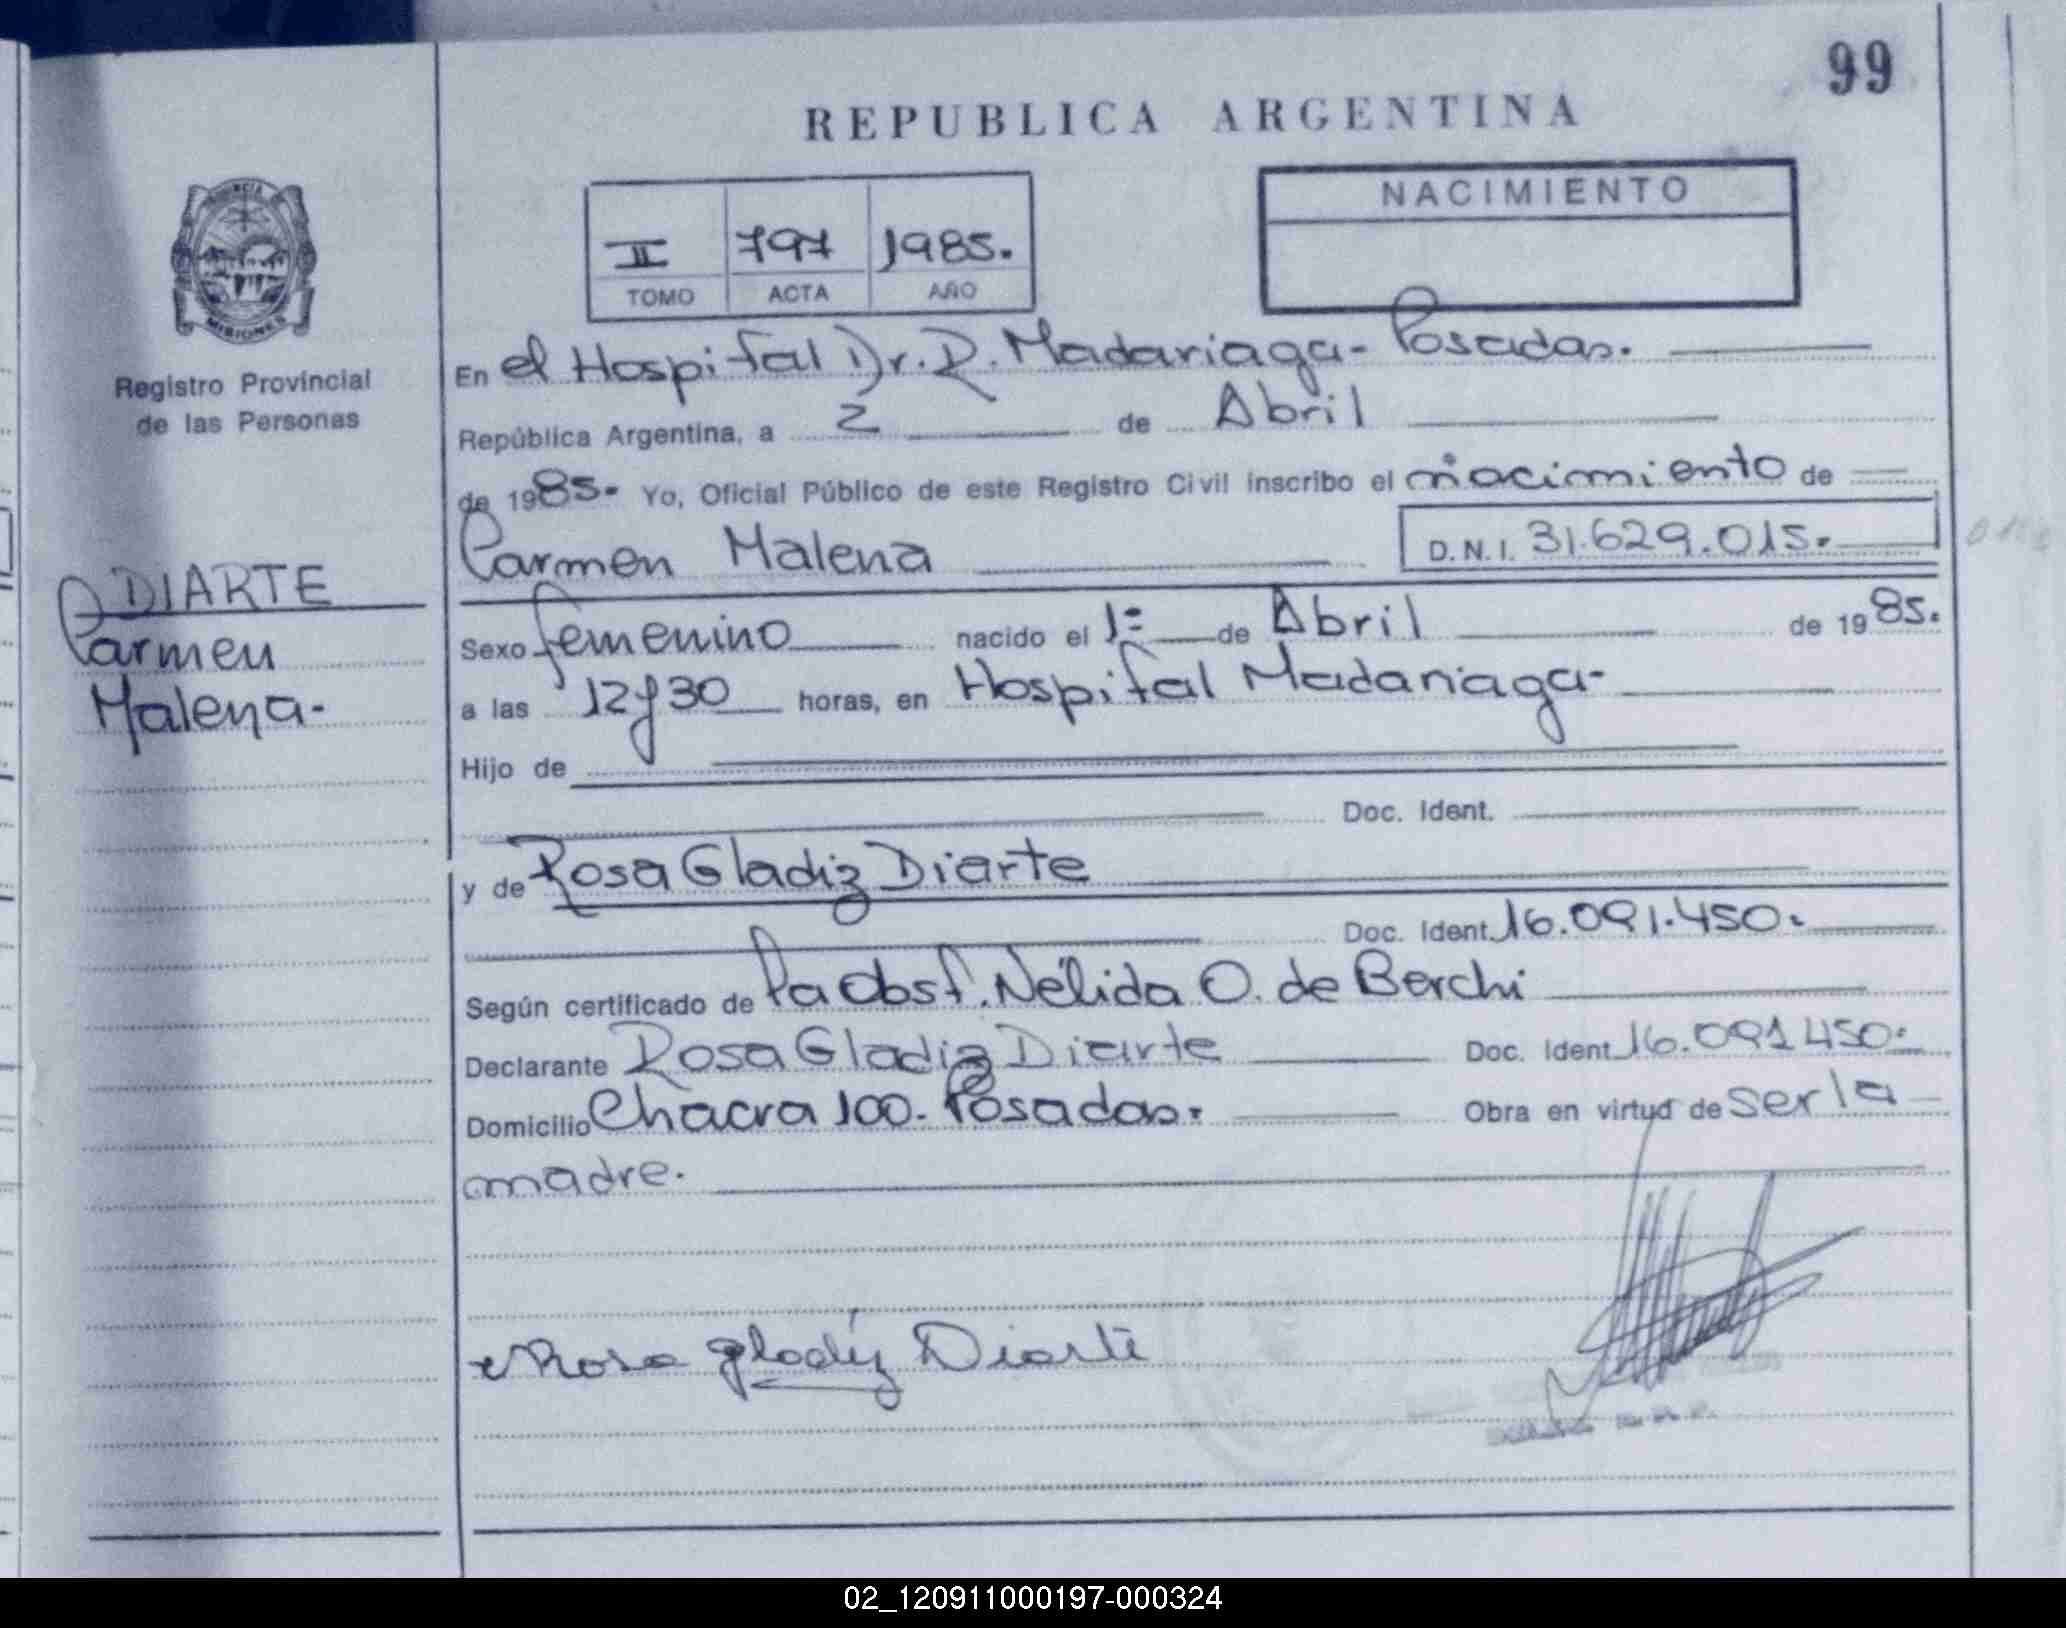 99
REPUBLICA ARGENTINA
PROVINCIA
MISIONES
Registro Provincial
de las Personas
II 797 1985.
TOMO ACTA AÑO
NACIMIENTO
En el Hospital Dr. R. Madariaga - Posadas.
República Argentina, a 2 de Abril
de 1985. Yo, Oficial Público de este Registro Civil inscribo el nacimiento de
Carmen Malena D.N.I. 31.629.015.
DIARTE
Carmen
Malena-
Sexo femenino nacido el 1º de Abril de 1985.
a las 12 y 30 horas, en Hospital Madariaga-
Hijo de
Doc. Ident.
y de Rosa Gladiz Diarte
Doc. Ident. 16.091.450.
Según certificado de la Obst. Nélida O. de Berchi
Declarante Rosa Gladiz Diarte Doc. Ident. 16.091450.
Domicilio Chacra 100. Posadas. Obra en virtud de ser la
madre.
Rosa gladiz Diarte
02_120911000197-000324